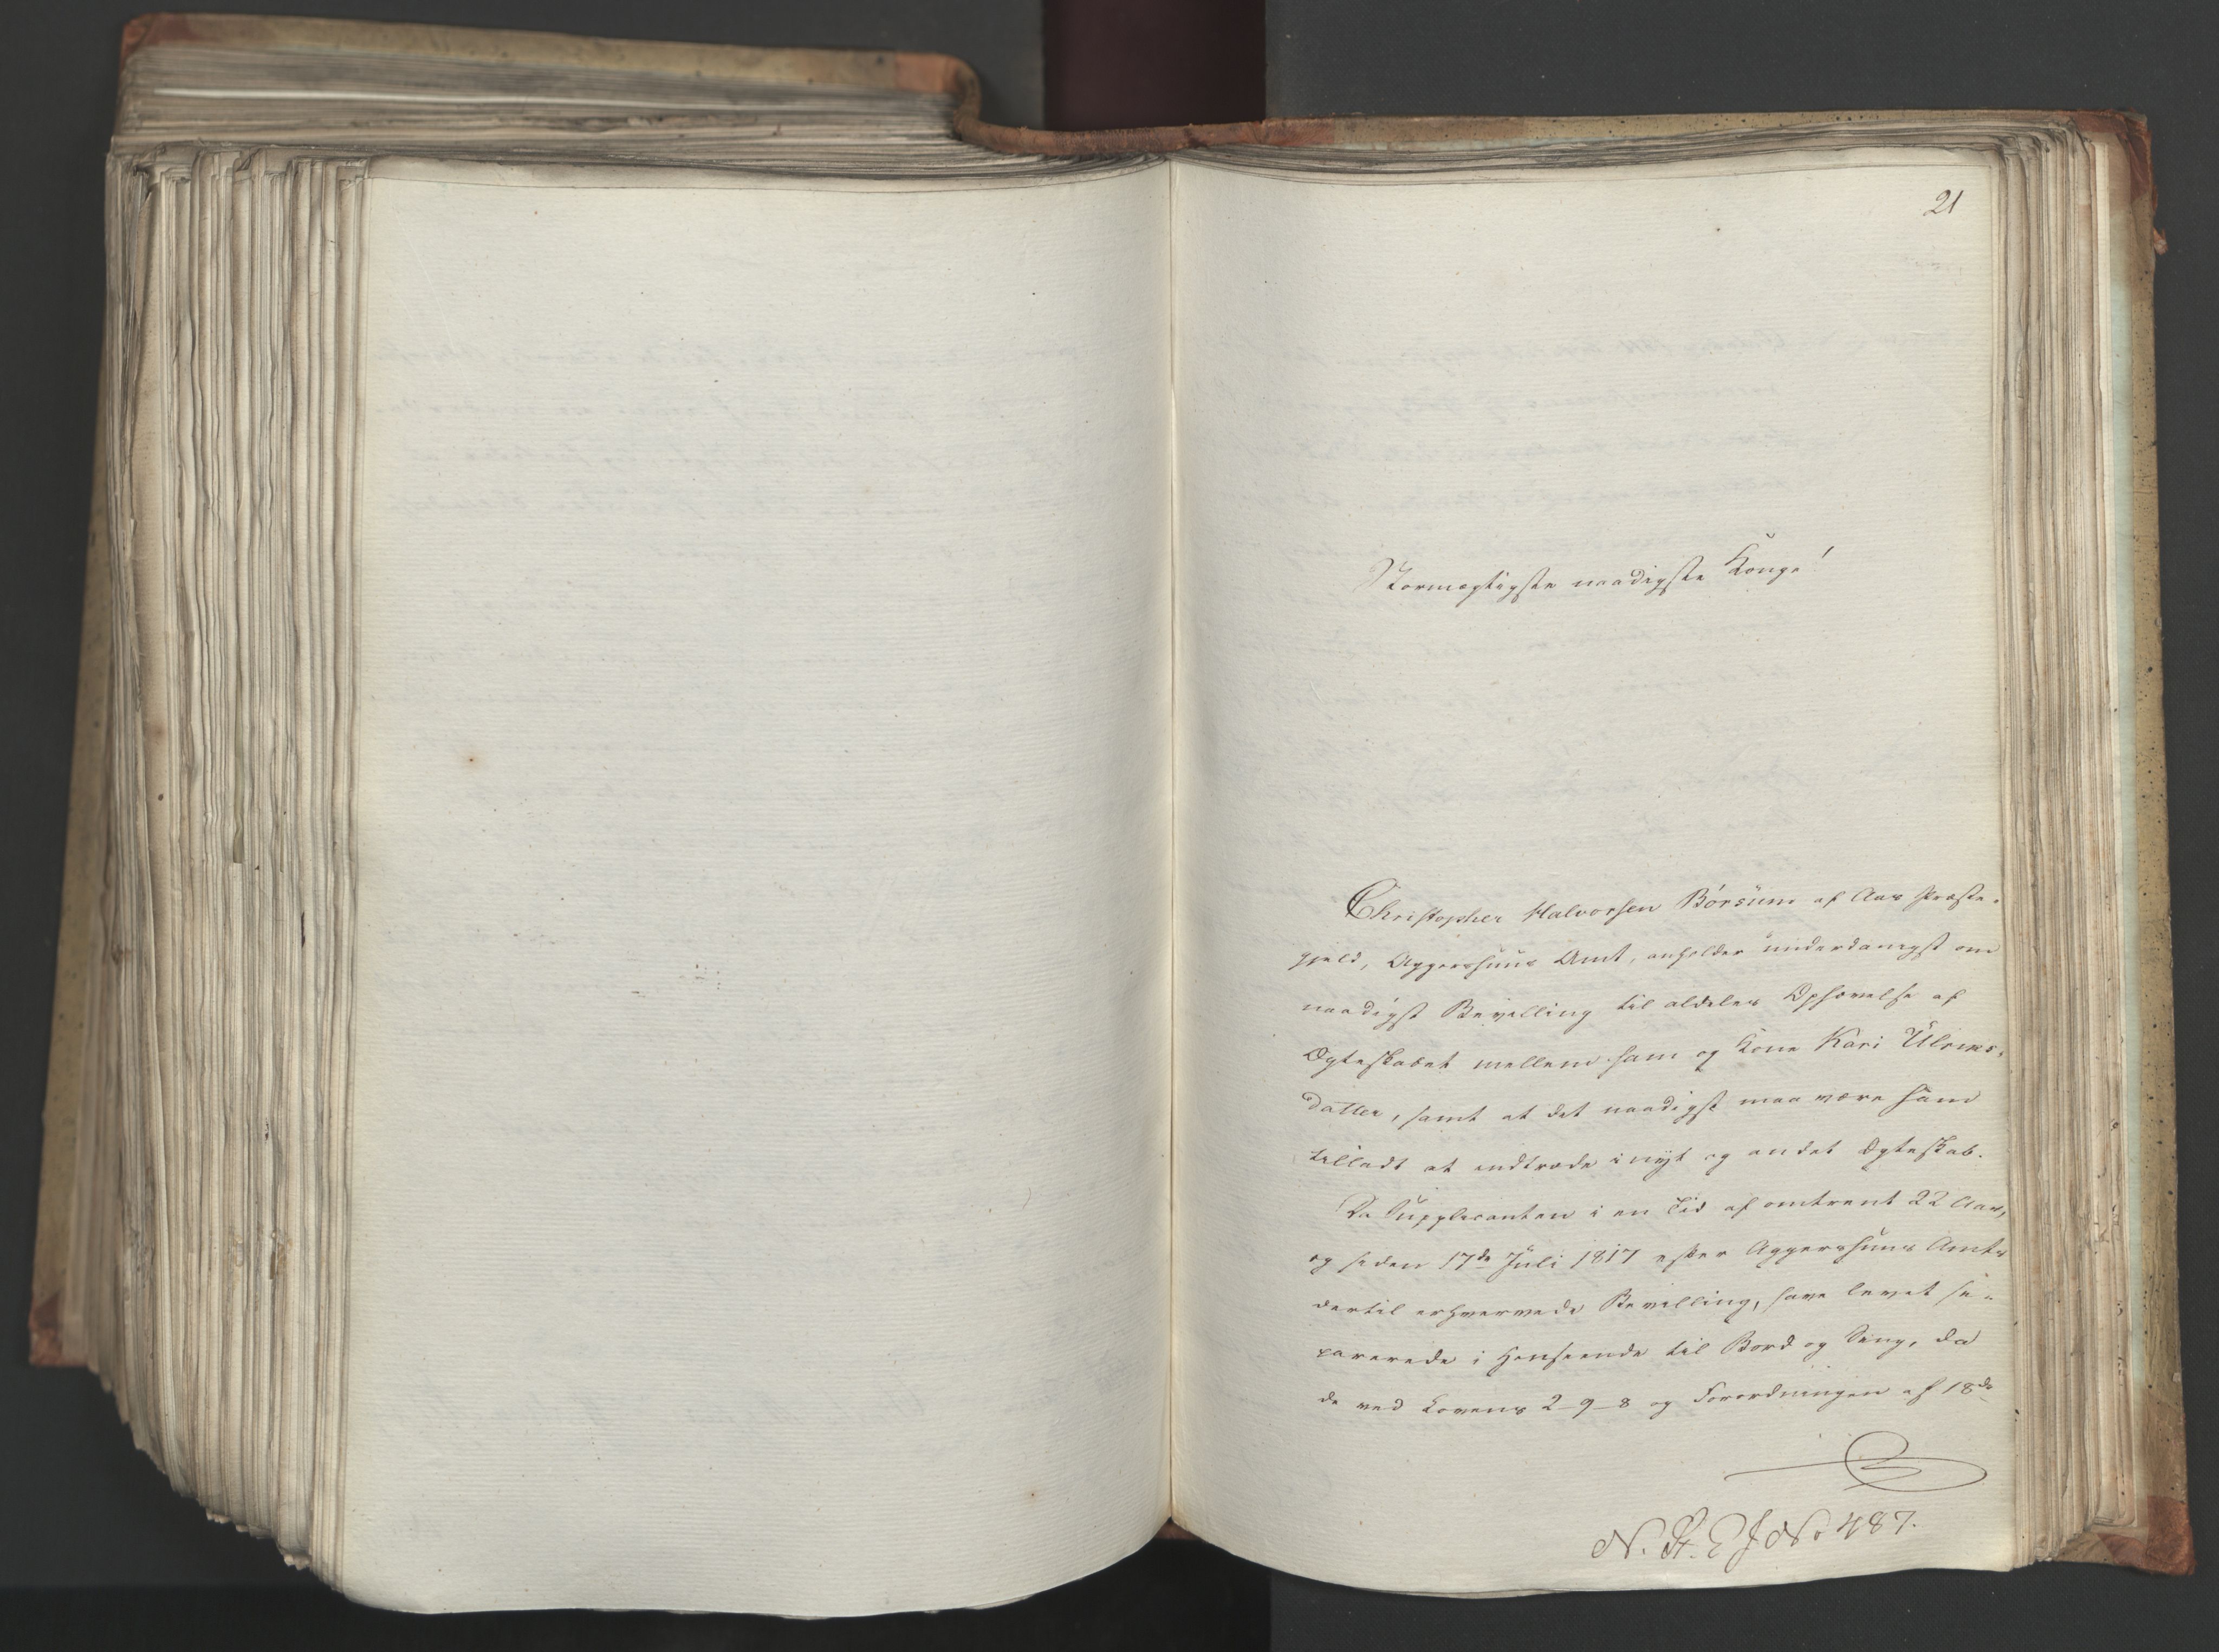 21
Stormægtigste naadigste Konge!
Christopher Halvorsen Börsum af Aas Præste-
gjeld, Aggershuus Amt, anholder underdanigst om
naadigst Bevilling til aldeles Ophævelse af
Ægteskabet mellem ham og Kone Kari Ulriks-
datter, samt at det naadigst maa være ham
tilladt at indtræde i nyt og andet Ægteskab.
Da Supplicanten i en Tid af omtrent 22 Aar,
og siden 17de Juli 1817 efter Aggershuus Amts
dertil erhvervede Bevilling, have levet se-
parerede i Henseende til Bord og Seng, da
de ved Lovens 2-9-8 og Forordningen af 18de
N. No 487.